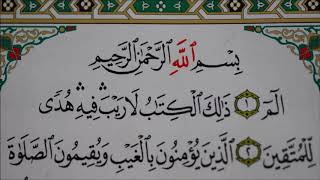 بِسْمِ ٱللَّهِ ٱلرَّحْمَٰنِ ٱلرَّحِيمِ
الٓمٓ ۝١ ذَٰلِكَ ٱلْكِتَٰبُ لَا رَيْبَ ۛ فِيهِ ۛ هُدًى
لِّلْمُتَّقِينَ ۝٢ ٱلَّذِينَ يُؤْمِنُونَ بِٱلْغَيْبِ وَيُقِيمُونَ ٱلصَّلَوٰةَ